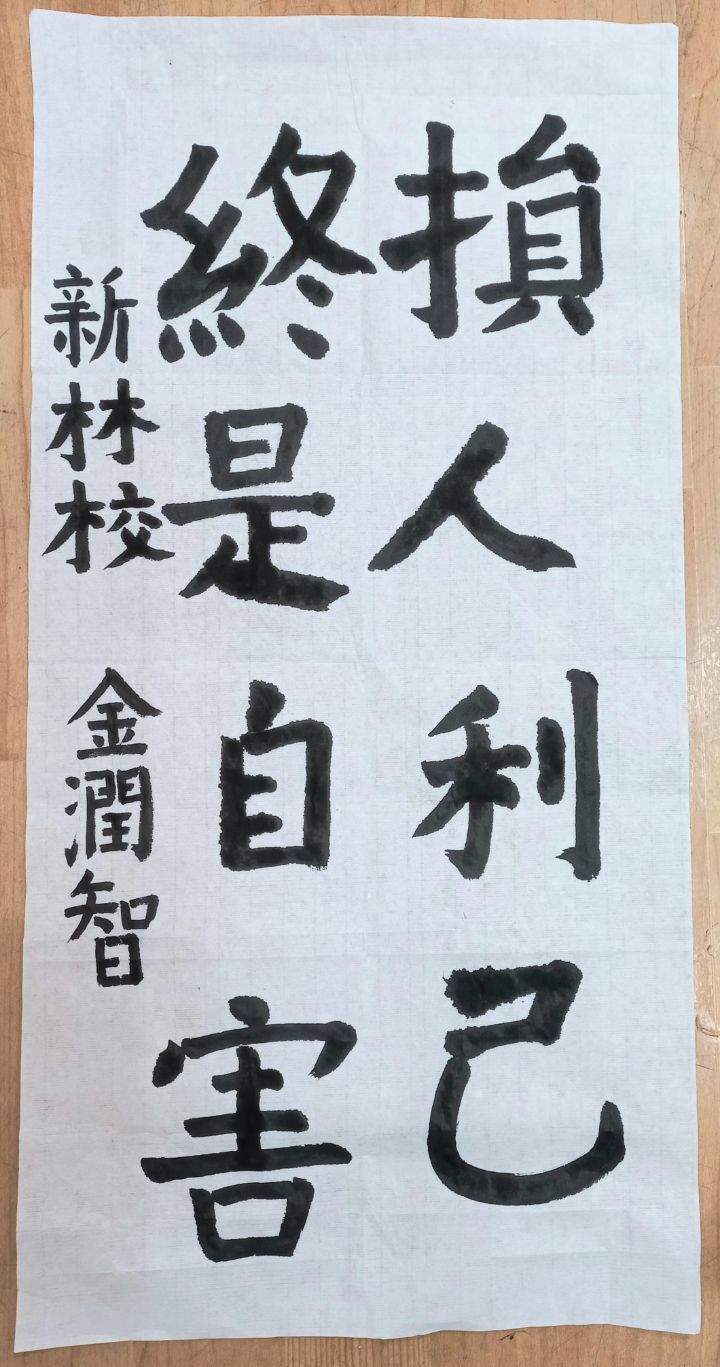 損人利己
終是自害
新林校 金潤智